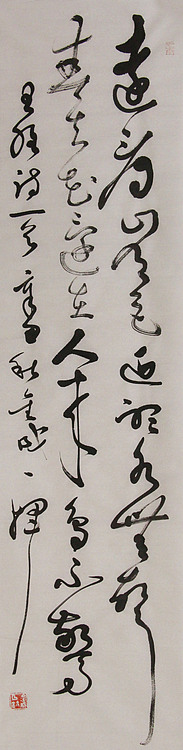 遠看山有色近聽水無聲
春去花還在人來鳥不驚
王維詩一首辛丑秋金